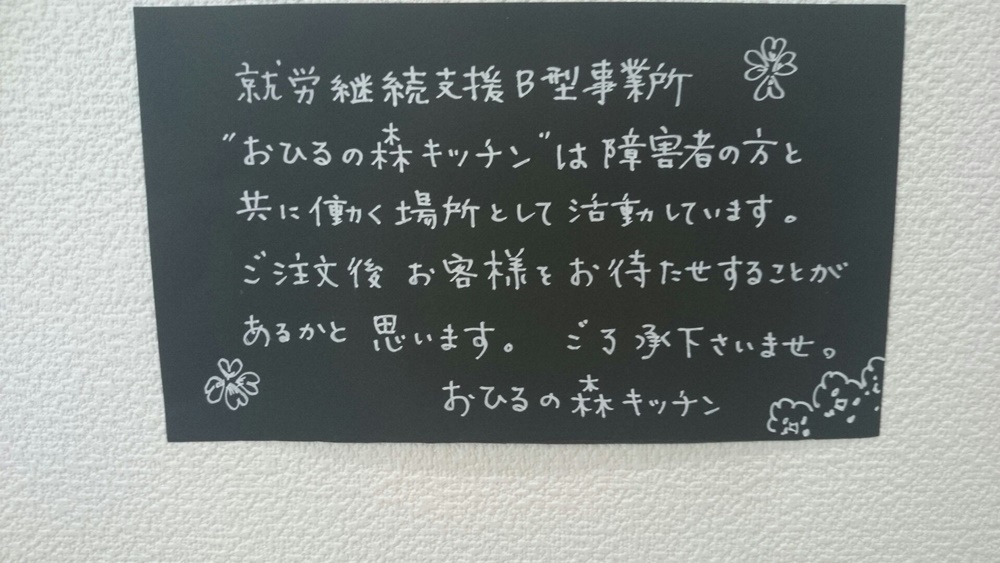 就労継続支援B型事業所
"おひるの森キッチン"は障害者の方と
共に働く場所として活動しています。
ご注文後 お客様をお待たせすることが
あるかと思います。 ご了承下さいませ。
おひるの森キッチン